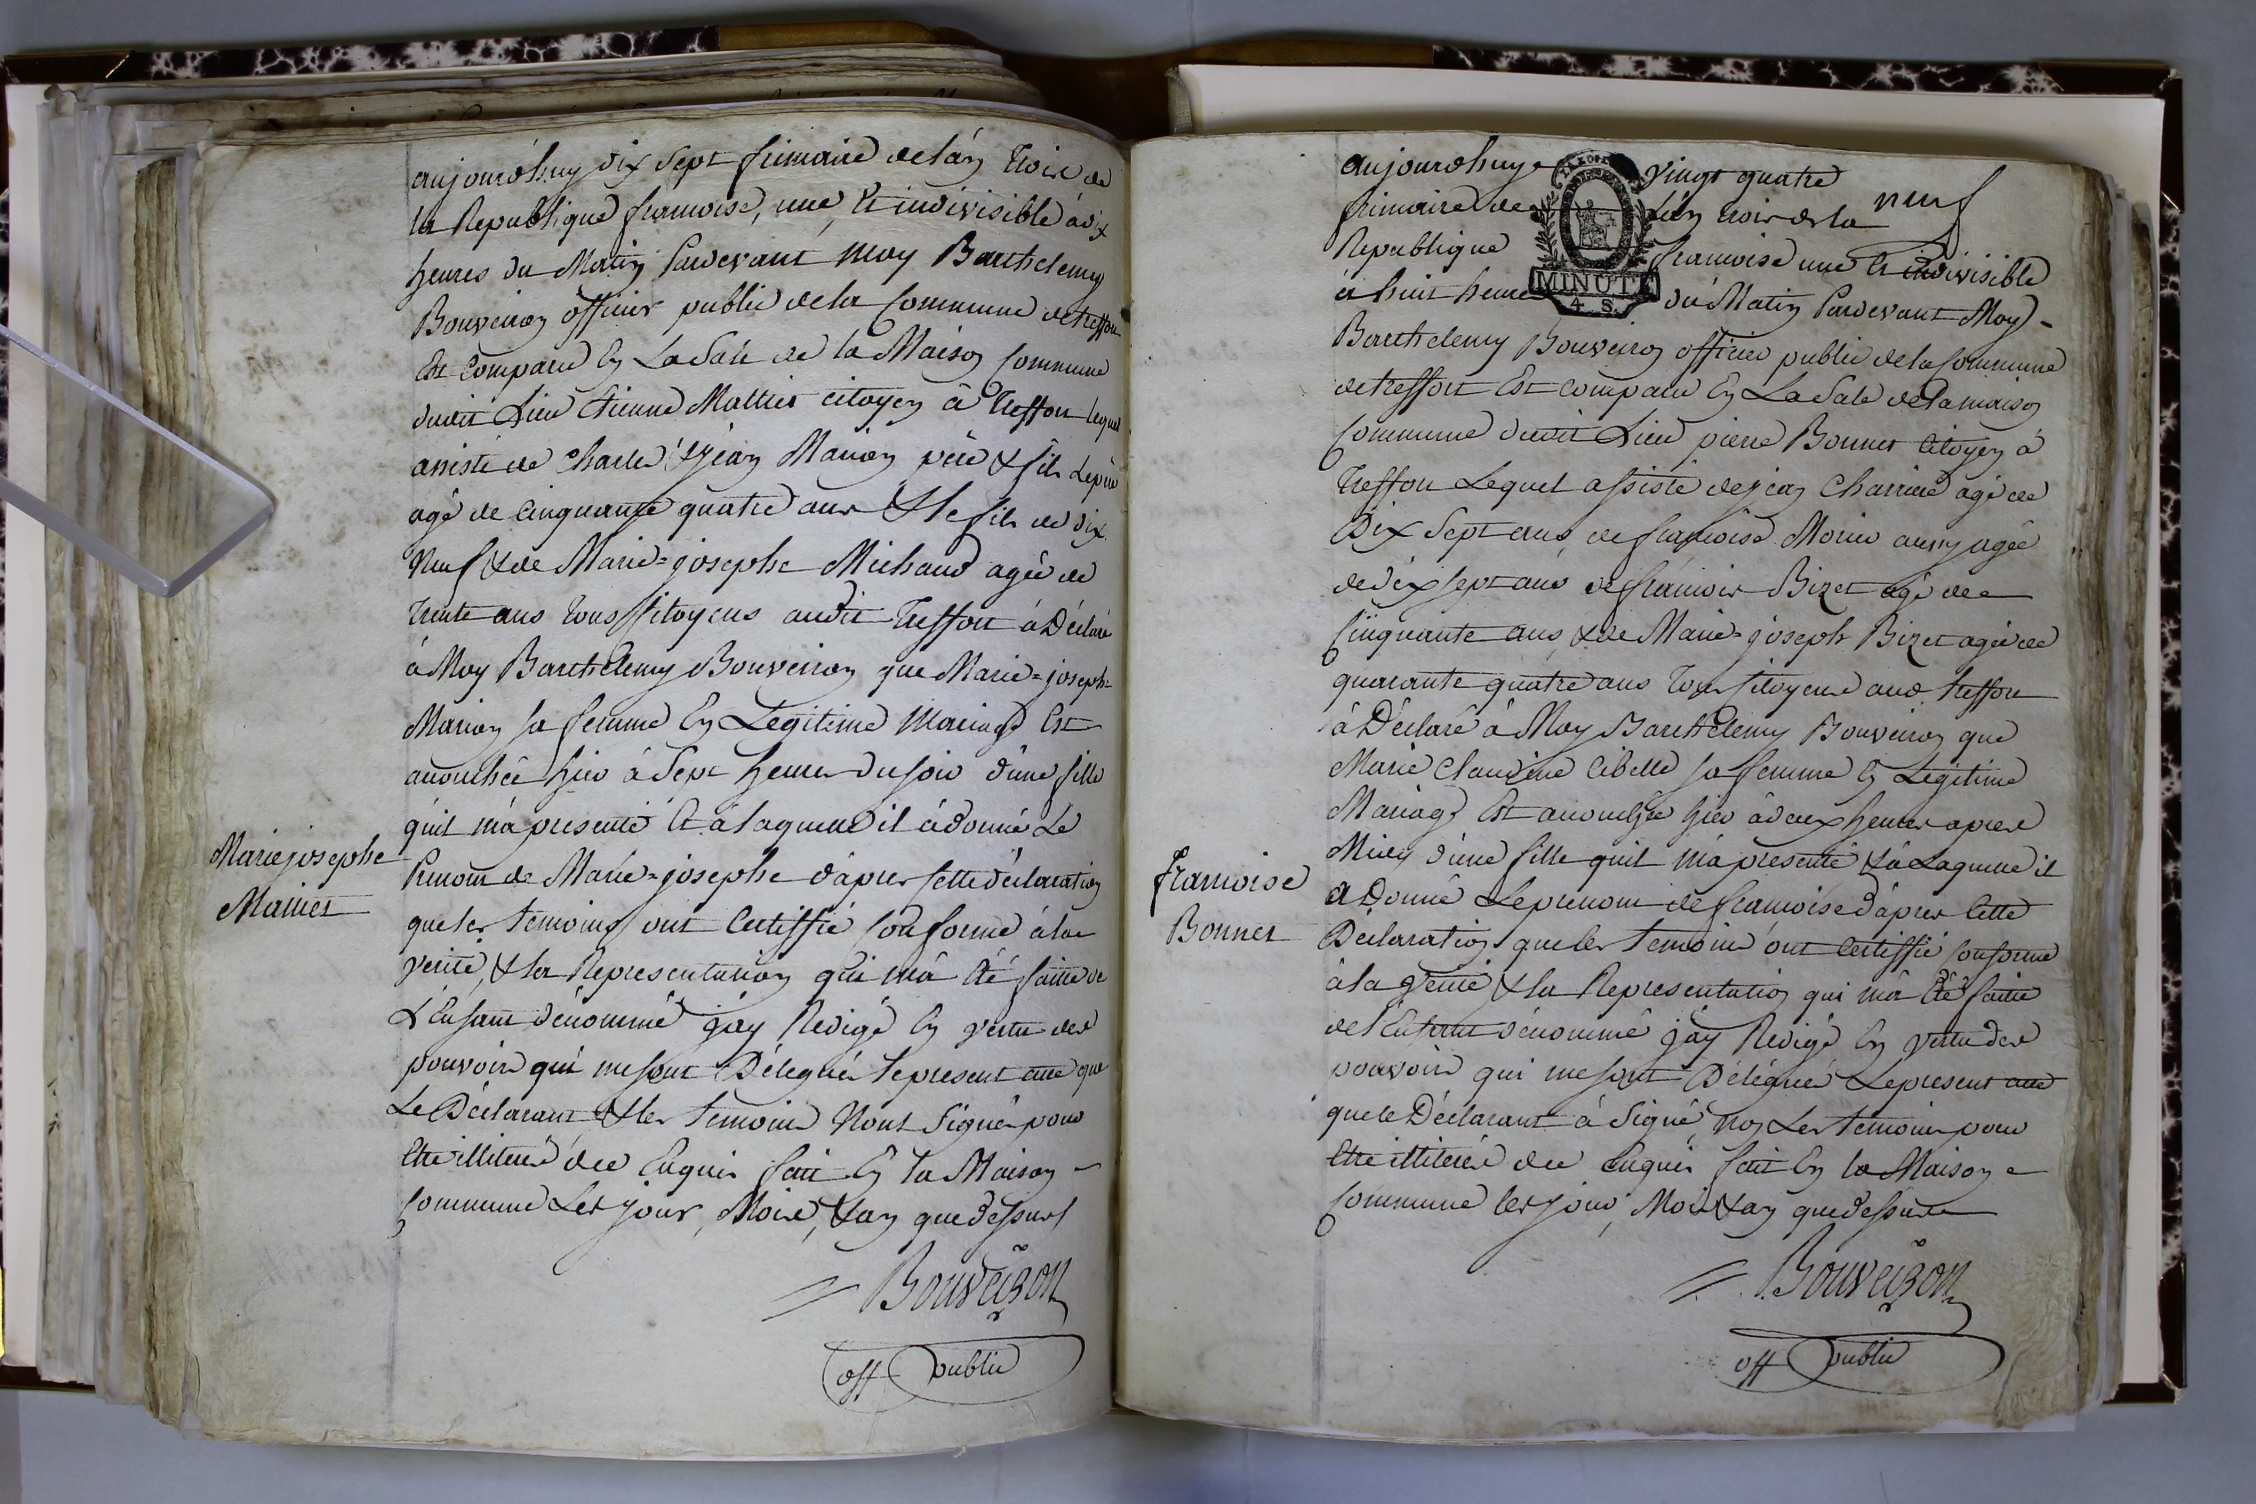 aujourd'huy dix sept frimaire de l'an trois de
la Republique francoise, une, et indivisible à dix
heures du Matin Pardevant Moy Barthelemy
Bouveiron officier public de la Commune de treffort
Est Comparu En La Sale de la Maison Commune
dudit Lieu Etienne Mattiet citoyen à Treffort lequel
assisté de Charles & jean Marion père & fils Le père
agé de Cinquante quatre ans & le fils de dix
Neuf & de Marie=josephe Michaud agée de
trente ans tous Citoyens audit Treffort à Déclaré
à Moy Barthelemy Bouveiron que Marie=josephe
Marion sa femme En Legitime Mariage Est
accouchée hier à Sept heures du soir d'une fille
quil m'à presenté Et à laquelle il à donné Le
Prenom de Marie=josephe d'après cette déclaration
que les temoins ont Certiffié Conforme à la
verité, & la Representation qui m'à été faitte de
L'Enfant dénommé j'ay Redigé En vertu des
pouvoirs qui me sont Délegués le present acte que
Le Déclarant & les temoins N'ont Signés pour
Etre illiteré de ce Enquis fait En la Maison
Commune Les jour, Mois, & an que dessus
Marie josephe
Mattiet
Bouveiron
off public
neuf
MINUTE
4. S.
aujourdhuy vingt quatre
frimaire de L'an trois de la
Republique francoise une et indivisible
à huit heures du Matin Pardevant Moy
Barthelemy Bouveiron officier public de la Commune
de treffort Est comparu En La Sale de la maison
Commune dudit Lieu pierre Bonnet Citoyen à
Treffort Lequel assisté de jean Charriere agé de
Dix Sept ans, de francoise Morier aussy agée
de dix sept ans de francois Bizet agé de
Cinquante ans, & de Marie=joseph Bizet agée de
quarante quatre ans tous Citoyens aud. treffort
à Déclaré à Moy Barthelemy Bouveiron que
Marie Claudine Cibelle sa femme En Légitime
Mariage Est accouchée hier à deux heures apres
Midy d'une fille quil m'à presenté & à Laquelle il
a Donné Le prenom de francoise d'àpres Cette
Déclaration que les temoins ont Certiffié Conforme
à la verité & la Representation qui m'à été faitte
de l'Enfant dénommé j'ay Redigé En vertu des
pouvoirs qui me sont Délégués Le present acte
que le Déclarant à Signé, Non Les temoins pour
Etre illiteré de ce Enquis fait En la Maison
Commune les jour, Mois & an que dessus
francoise
Bonnet
Bouveiron
off public